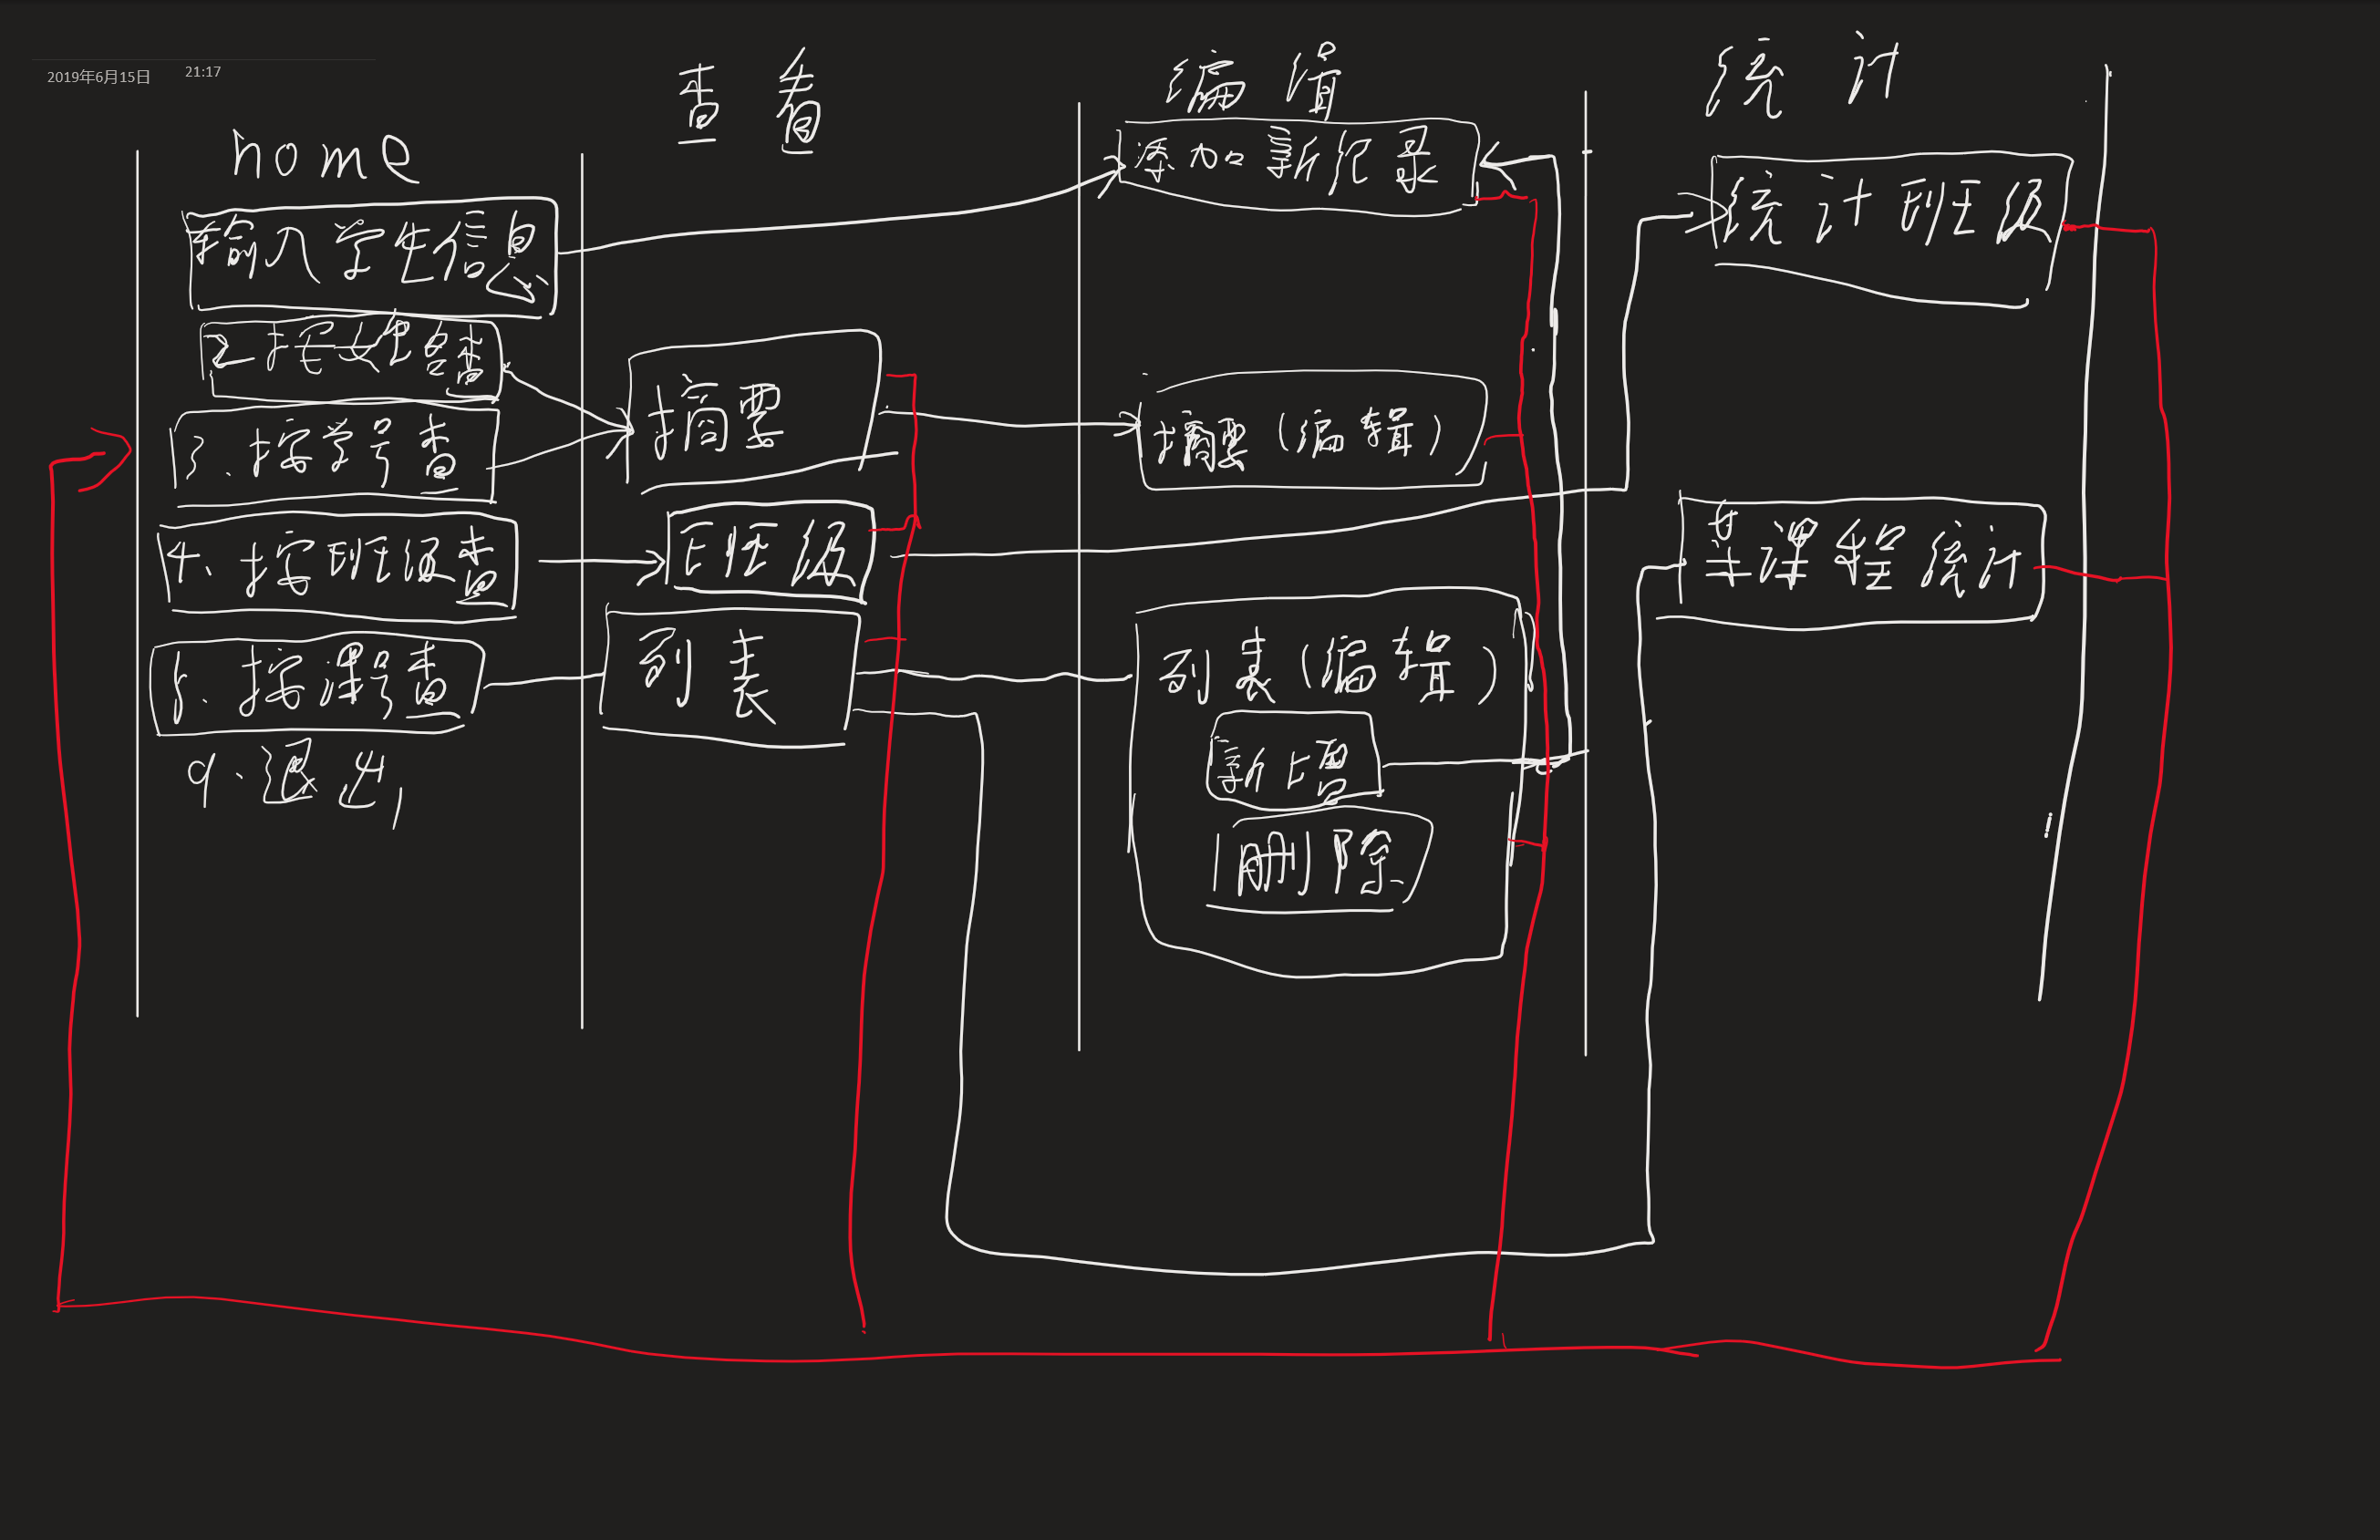 2019年6月15日 21:17
home
查看
编辑
统计
输入学生信息
2.按姓名查
3.按学号查
4.按班级查
5.按课号查
9.退出
摘要
班级
列表
添加新记录
摘要(编辑)
列表(编辑)
新增
删除
统计班级
单课程统计